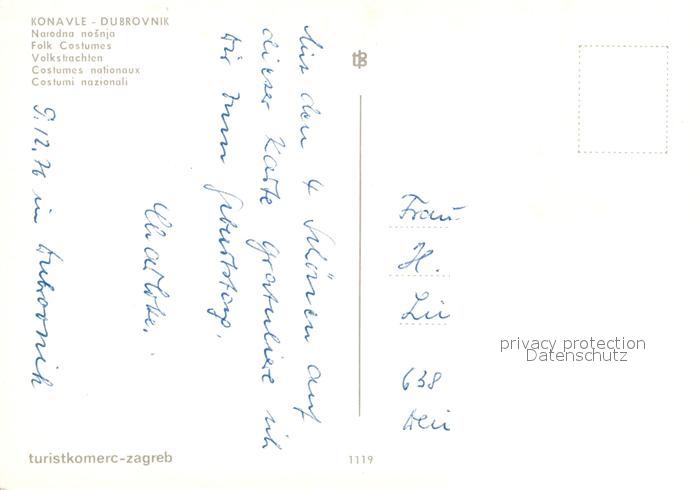 KONAVLE - DUBROVNIK
Narodna nošnja
Folk Costumes
Volkstrachten
Costumes nationaux
Costumi nazionali
Mit den 4 Schönen auf
dieser Karte gratuliere ich
Dir zum Geburtstag.
Charlotte.
9.12.76 in Dubrovnik
Frau
H.
638
privacy protection
Datenschutz
turistkomerc-zagreb
1119